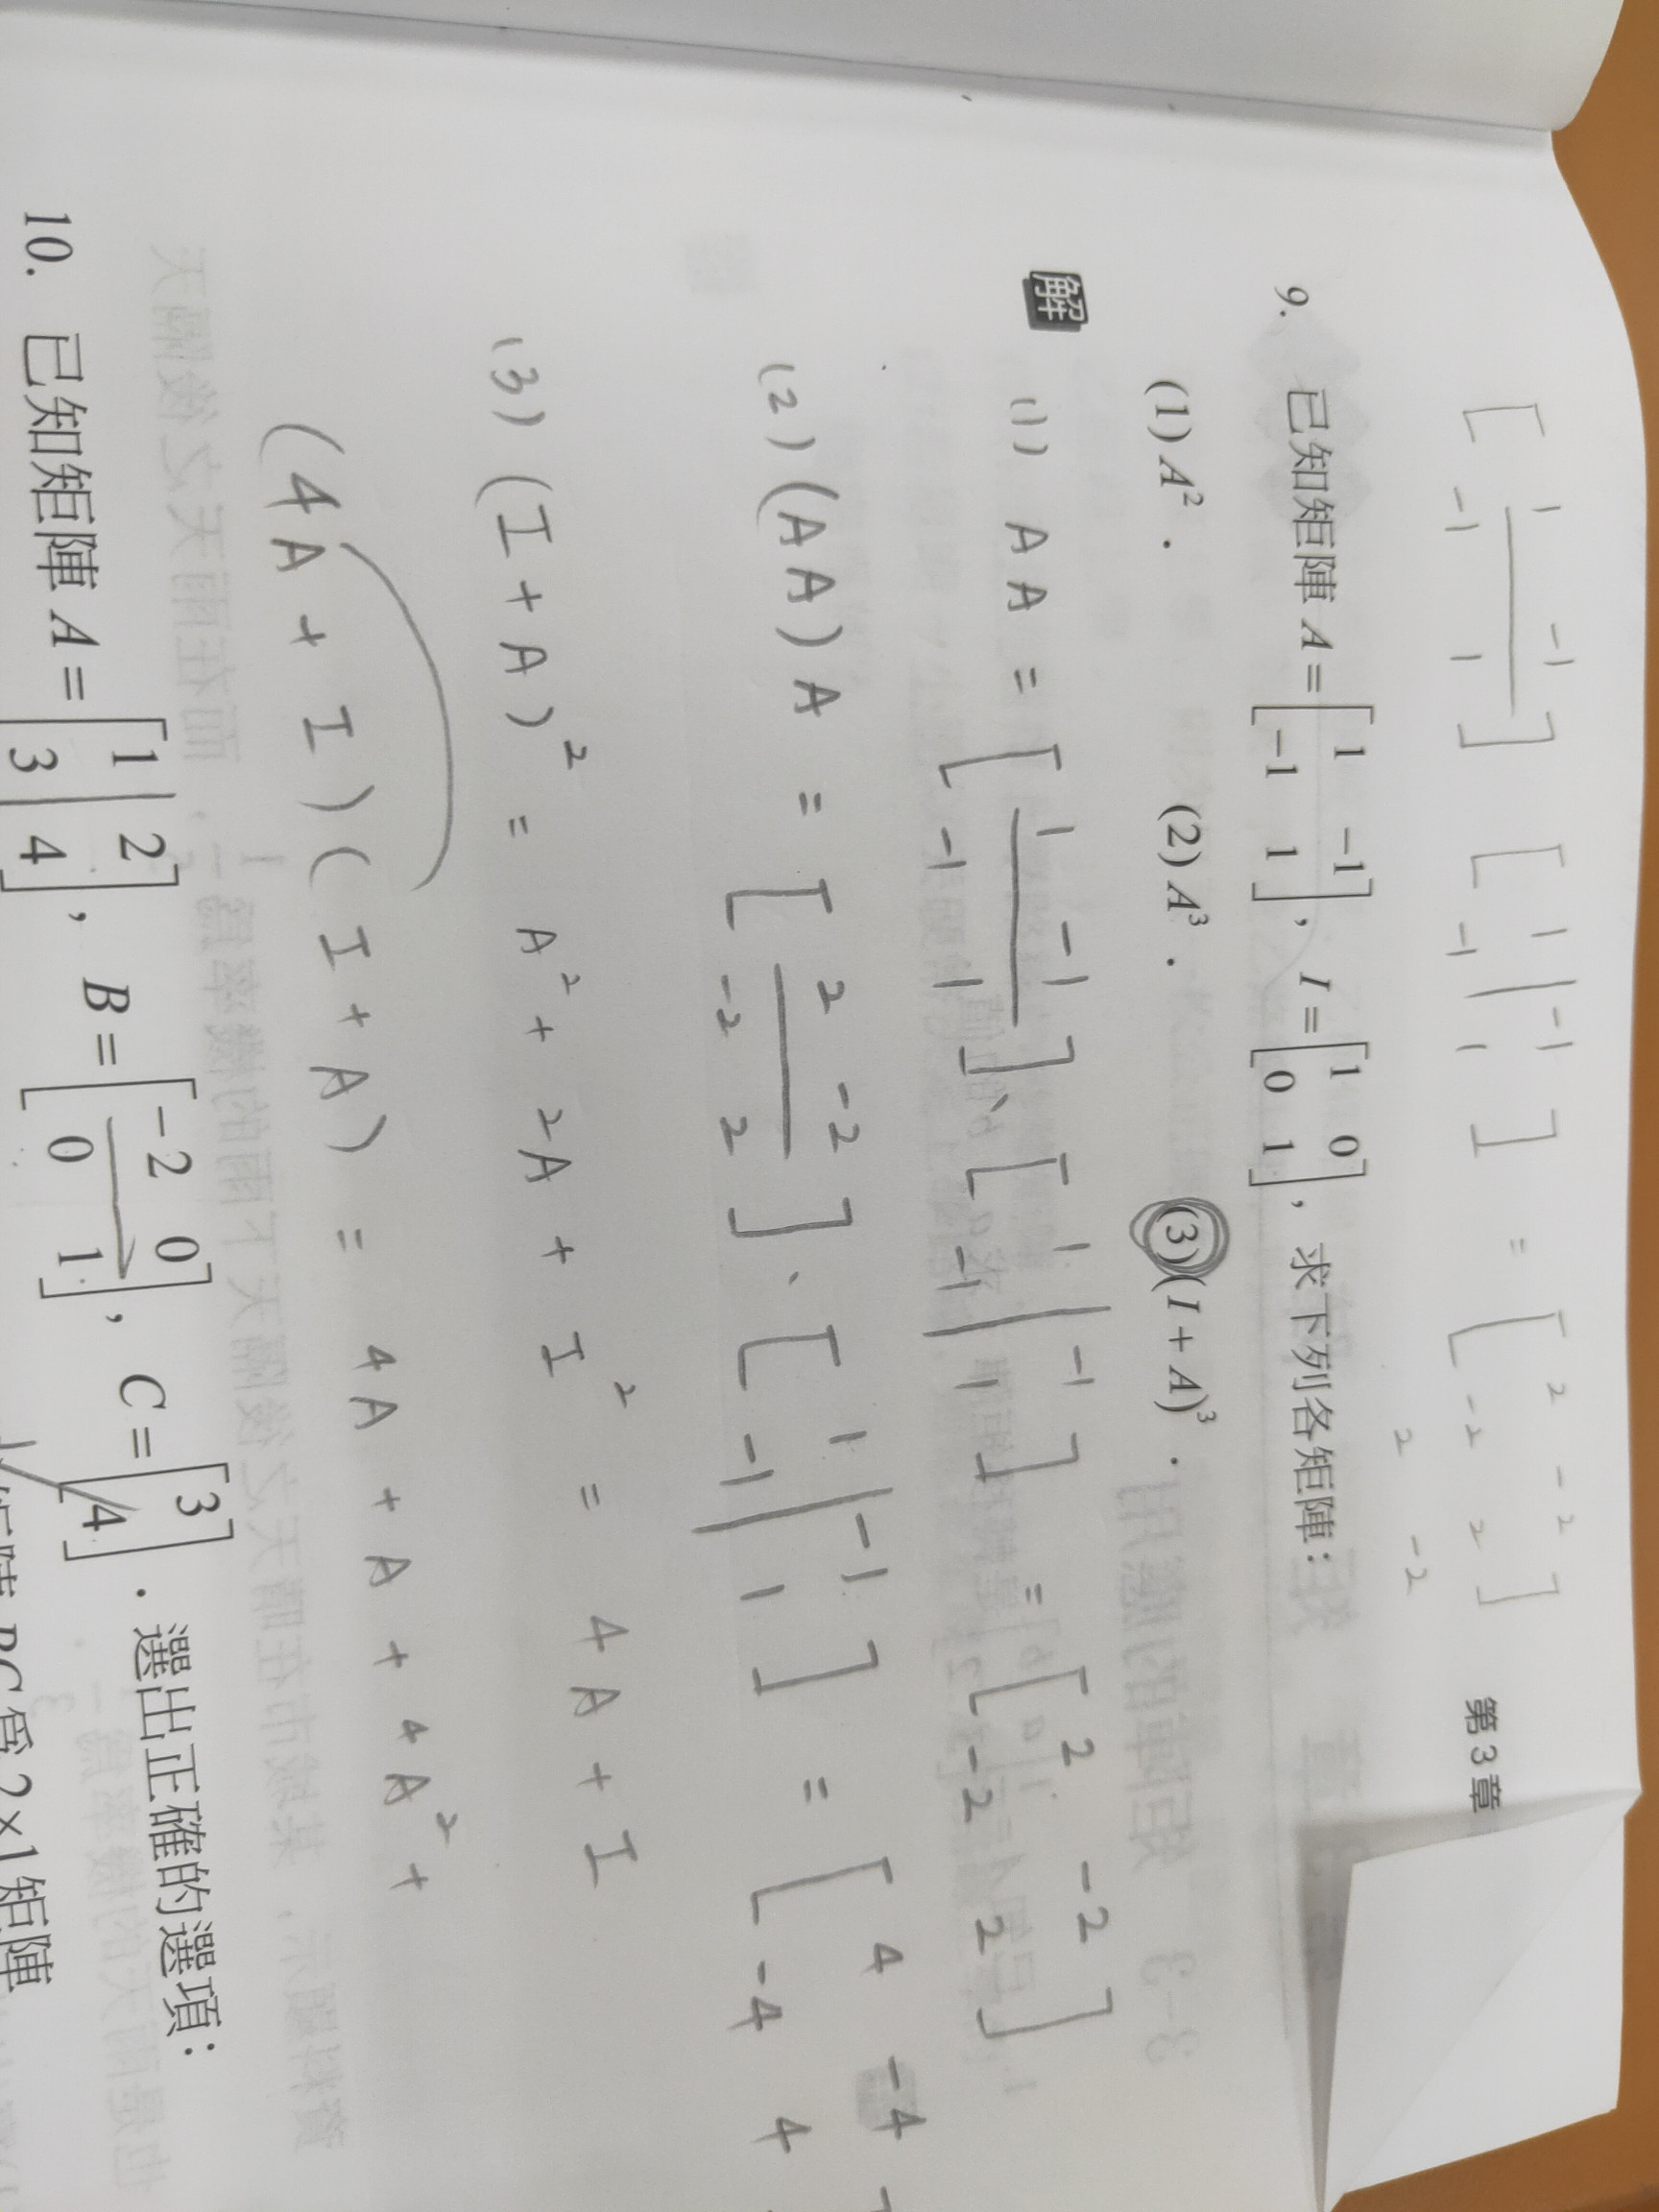 [ 1 -1 -1 1 ] [ 1 -1 -1 1 ] = [ 2 -2 -2 2 ]
2 -2
第3章
9. 已知矩陣 A = [ 1 -1 -1 1 ], I = [ 1 0 0 1 ], 求下列各矩陣:
(1) A². (2) A³. (3) (I + A)³.
解
(1) AA = [ 1 -1 -1 1 ]、[ 1 -1 -1 1 ] = [ 2 -2 -2 2 ]
(2) (AA)A = [ 2 -2 -2 2 ]、[ 1 -1 -1 1 ] = [ 4 -4 -4 4
(3) (I + A)² = A² + 2A + I² = 4A + I
(4A + I)(I + A) = 4A + A + 4A² +
10. 已知矩陣 A = [ 1 2 3 4 ], B = [ -2 0 0 1 ], C = [ 3 4 ]. 選出正確的選項:
矩陣 BC 為 2×1 矩陣